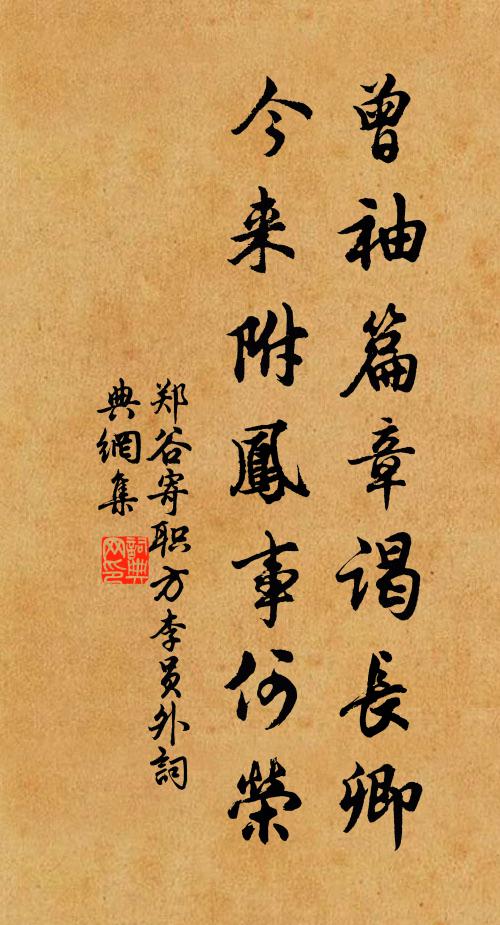 曾袖篇章谒長卿
今来附鳳事何榮
郑谷寄职方李员外詞
典網集
詞典网印